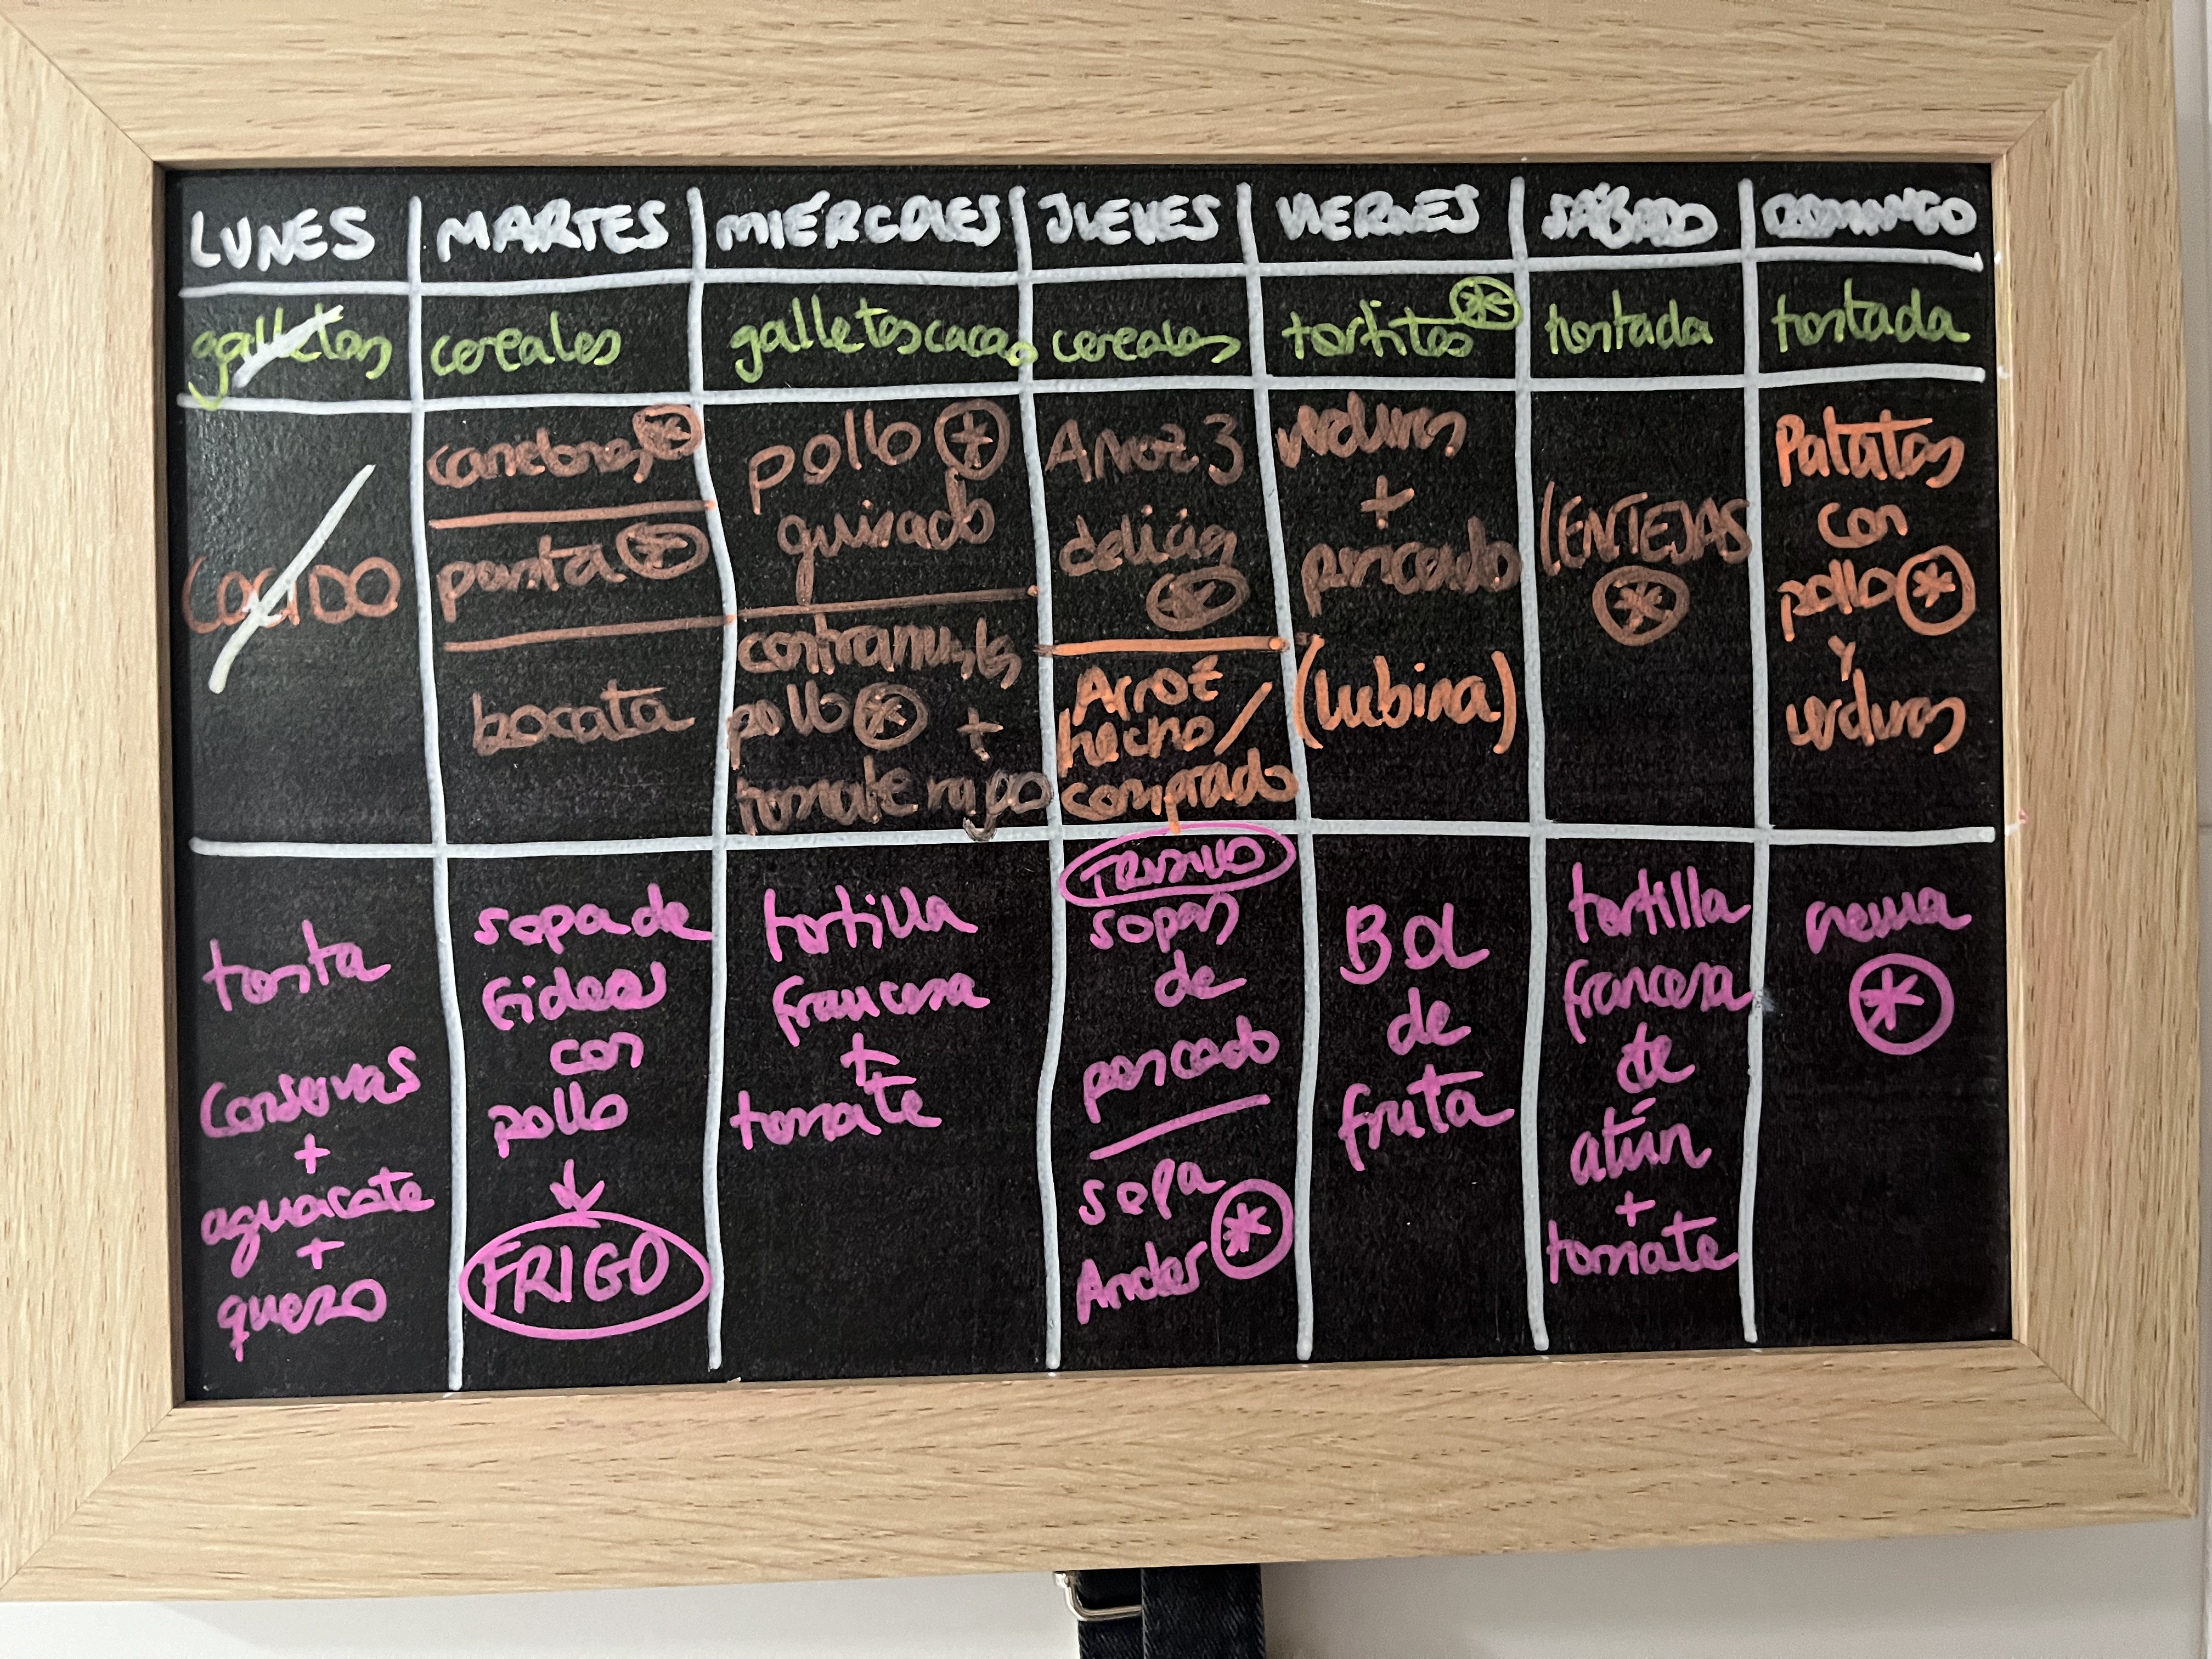 LUNES MARTES MIÉRCOLES JUEVES VIERNES SÁBADO DOMINGO
galletas cereales galletas cacao cereales tortitas * tostada tostada
COCIDO
*
pasta *
bocata
pollo *
guisado
contramuslos
pollo * +
tomate rayao
Arroz 3
delicias
*
Arroz
hecho /
comprado
verduras
+
pescado
(lubina)
LENTEJAS
*
Patatas
con
pollo *
y
verduras
tosta
conservas
+
aguacate
+
queso
sopa de
fideos
con
pollo
↓
FRIGO
tortilla
francesa
+
tomate
sopas
de
pescado
sopa
Ander *
BOL
de
fruta
tortilla
francesa
de
atún
+
tomate
crema
*